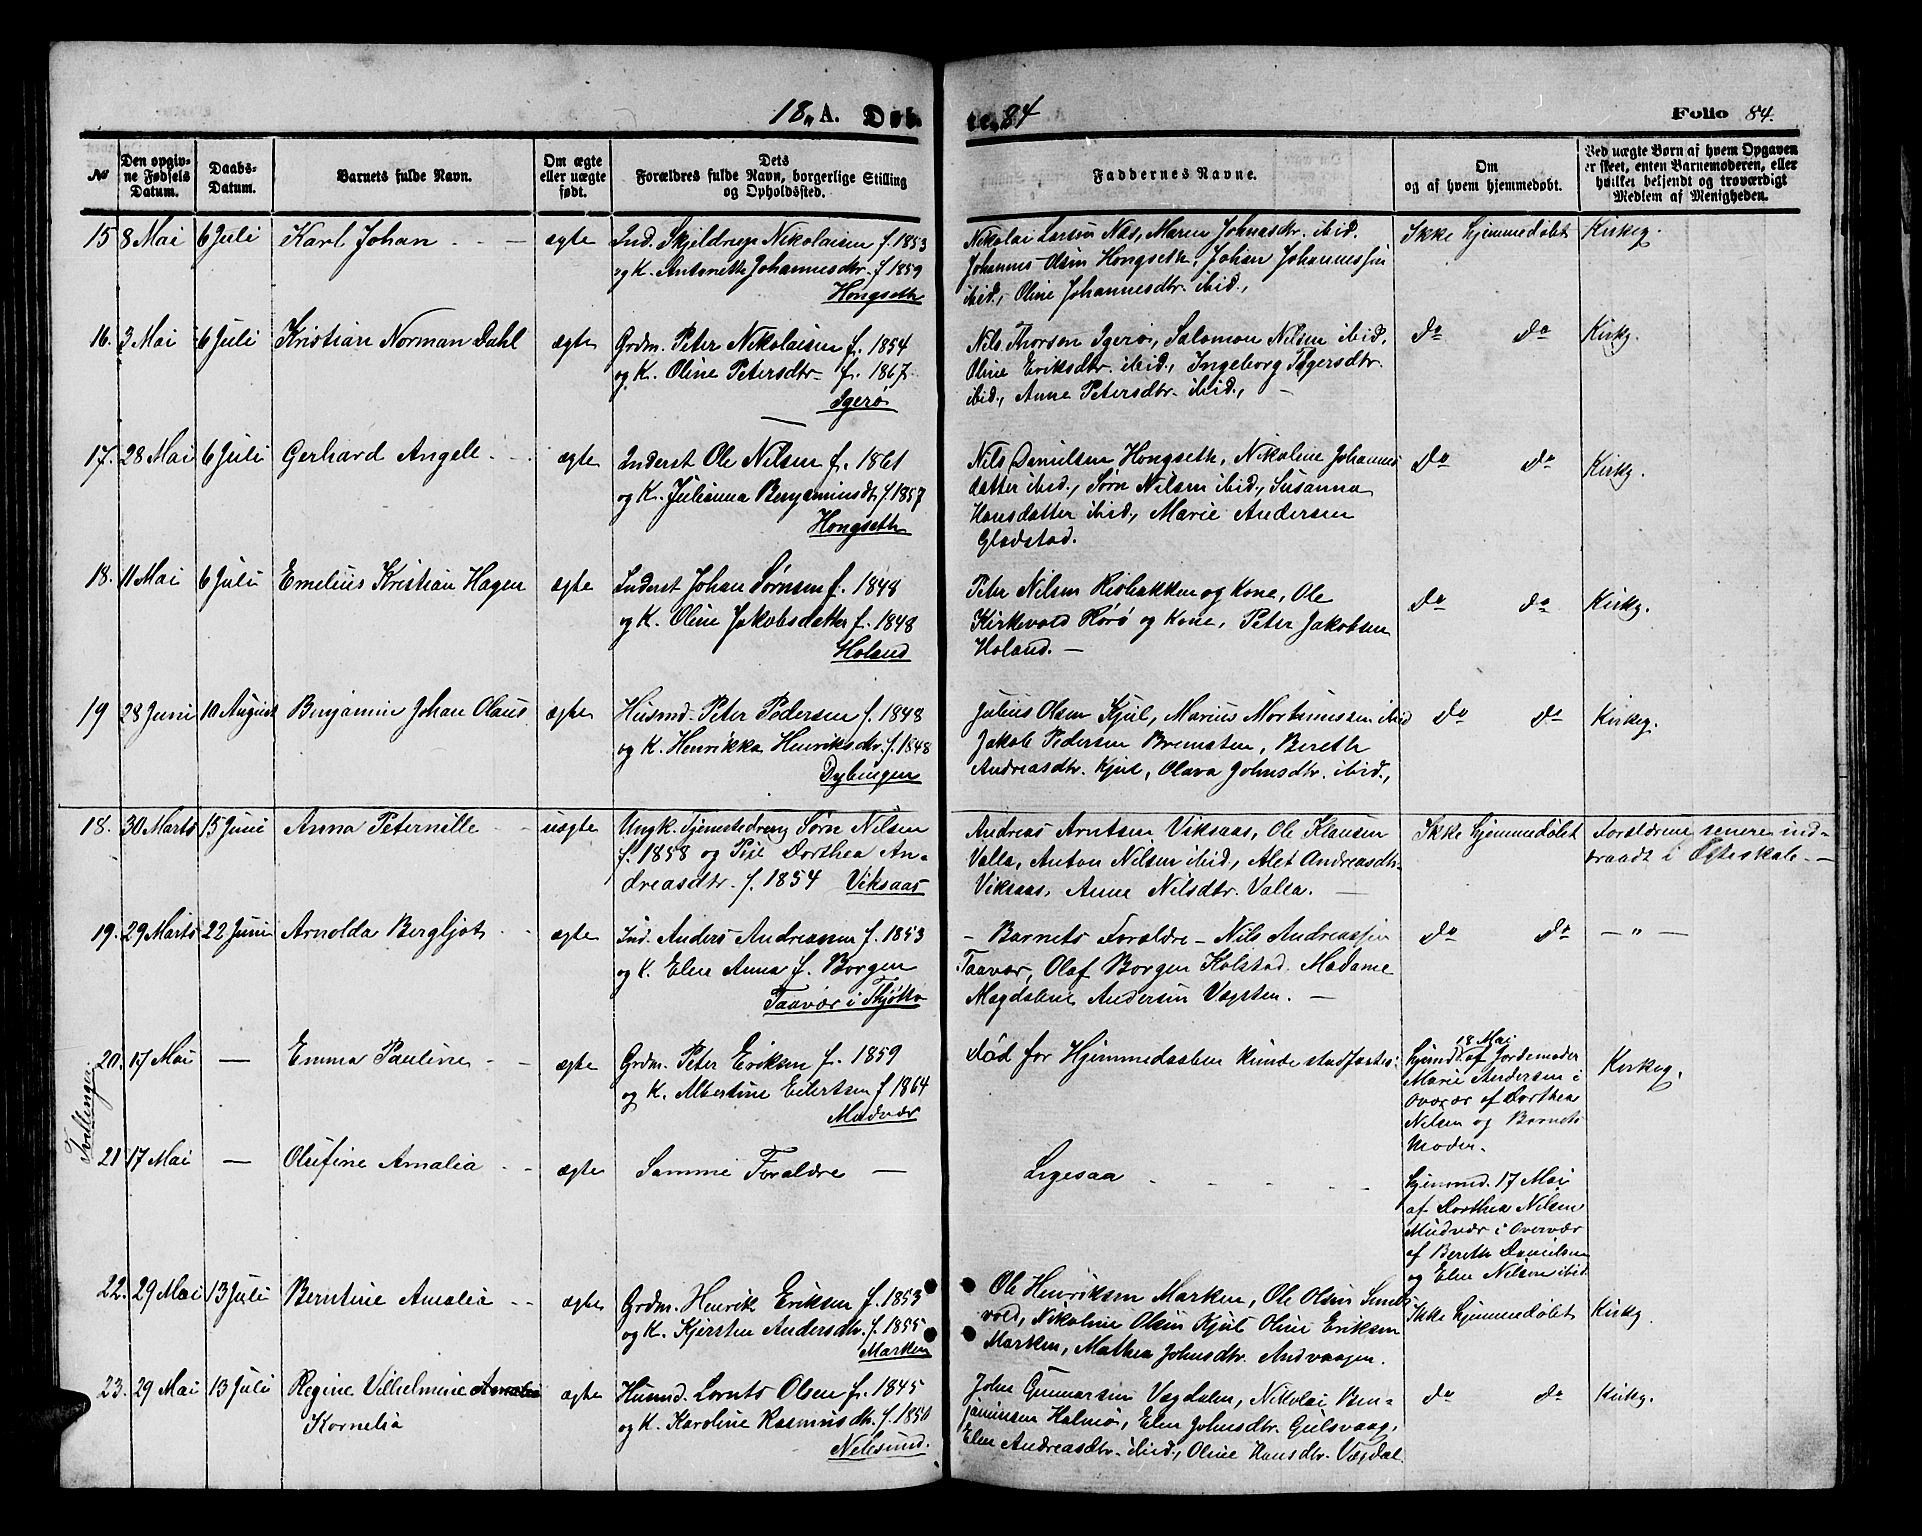 18 A. Døb te. 84 Folio 84.
No
Den opgivne Fødsels Datum.
Daabs-Datum.
Barnets fulde Navn.
Om ægte eller uægte født.
Dets Forældres fulde Navn, borgerlige Stilling og Opholdssted.
Faddernes Navne.
Om og af hvem hjemmedøbt.
Ved uægte Børn af hvem Opgaven er skeet, enten Barnemoderen, eller hvilket bekjendt og troværdigt Medlem af Menigheden.
15 8 Mai 6 Juli Karl Johan ægte Ind. Skjeldrup Nikolaisen f. 1853
og K. Antonette Johannesdtr. f. 1859
Hongseth
Nikolai Larsen Næs, Maren Johnasdtr. ibid.
Johannes Olsen Hongseth, Johan Johannessen
ibid., Oline Johannesdtr. ibid.,
Ikke hjemmedøbt Kirkeg.
16. 3 Mai 6 Juli Kristian Norman Dahl ægte Grdm. Peter Nikolaisen f. 1854
og K. Oline Petersdtr f. 1867.
Igerø
Nils Thorsen Igerø, Salomon Nilsen ibid,
Oline Eriksdtr. ibid., Ingeborg
ibid., Anne Petersdtr. ibid., —
do do Kirkg.
17. 28 Mai 6 Juli Gerhard Angell ægte Inderst Ole Nilsen f. 1861
og K. Julianna Benjaminsdt f. 1857
Hongseth
Nils Danielsen Hongseth, Nikoline Johannes
datter ibid., Sørn Nilsen ibid., Susanna
Hansdatter ibid., Marie Andersen
Gladstad.
do do Kirkg.
18. 11 Mai 6 Juli Emelius Kristian Hagen ægte Inderst Johan Sørnsen f. 1848
og K. Oline Jakobsdatter f. 1848
Holand
Peter Nilsen Risbakken og Kone, Ole
Kirkevold Rørø og Kone, Peter Jakobsen
Holand. —
do do Kirkg.
19 28 Juni 10 August Benjamin Johan Olaus ægte Husmd. Peter Pedersen f. 1848
og K. Henrikka Henriksdtr. f. 1848
Dybingen
Julius Olsen Kjul, Marius Mortinussen ibid
Jakob Pedersen Bremsten, Bereth
Andreasdtr. Kjul, Olava Johnsdtr. ibid.,
do do Kirkeg.
18. 30 Marts 15 Juni Anna Peternille uægte Ungk. Tjenestedreng Sørn Nilsen
f. 1858 og Pige Dorthea An-
dreasdtr. f. 1854 Viksaas
Andreas Arntsen Viksaas, Ole Klausen
Valla, Anton Nilsen ibid., Alet Andreasdtr.
Viksaas, Anne Nilsdtr. Valla. —
Ikke hjemmedøbt Forældrene senere ind-
traadt i Ægteskab. —
19. 29 Marts 22 Juni Arnolda Bergljot ægte Ind. Anders Andreasen f. 1853
og K. Elen Anna f. Borgen
Taavær i Tjøtta
- Barnets Forældre - Nils Andreassen
Taavær, Olaf Borgen Kolstad. Madame
Magdalene Andersen Vægsten. —
do do — " —
Tvillinger.
20. 17 Mai — Emma Pauline ægte Grdm. Peter Eriksen f. 1859
og K. Albertine Eilertsen f 1864
Mudvær
Død før Hjemmedaaben kunde stadfæstes:
18 Mai
hjemd. af Jordemoder
Marie Andersen i
Overvær af Dorthea
Nilsen og Barnets
Moder.
Kirkeg.
21 17 Mai — Olufine Amalia ægte Samme Forældre —
Ligesaa
hjemmd. 17 Mai
af Dorthea Nilsen
Mudvær i Overvær
af Bereth Danielsen
og Elen Nilsen ibid
22. 29 Mai 13 Juli Berntine Amalia ægte Grdm. Henrik Eriksen f. 1853
og K. Kjersten Andersdtr. f. 1855
Marken
Ole Henriksen Marken, Ole Olsen
vold, Nikoline Olsen Kjul Oline Eriksen
Marken, Mathea Johnsdtr. Andvaagen.
Ikke hjemmedøbt Kirkg.
23. 29 Mai 13 Juli Regine Vilhelmine Amalia
Kornelia
ægte Husmd. Lornts Olsen f. 1845
og K. Karoline Rasmusdtr. f. 1850
Nilssund.
John Gunnarsen Vægdalen, Nikolai Ben-
jaminsen Holmø, Elen Johnsdtr. Gulsvaag,
Elen Andreasdtr. ibid., Oline Hansdtr. Vægdal
do do Kirkg.